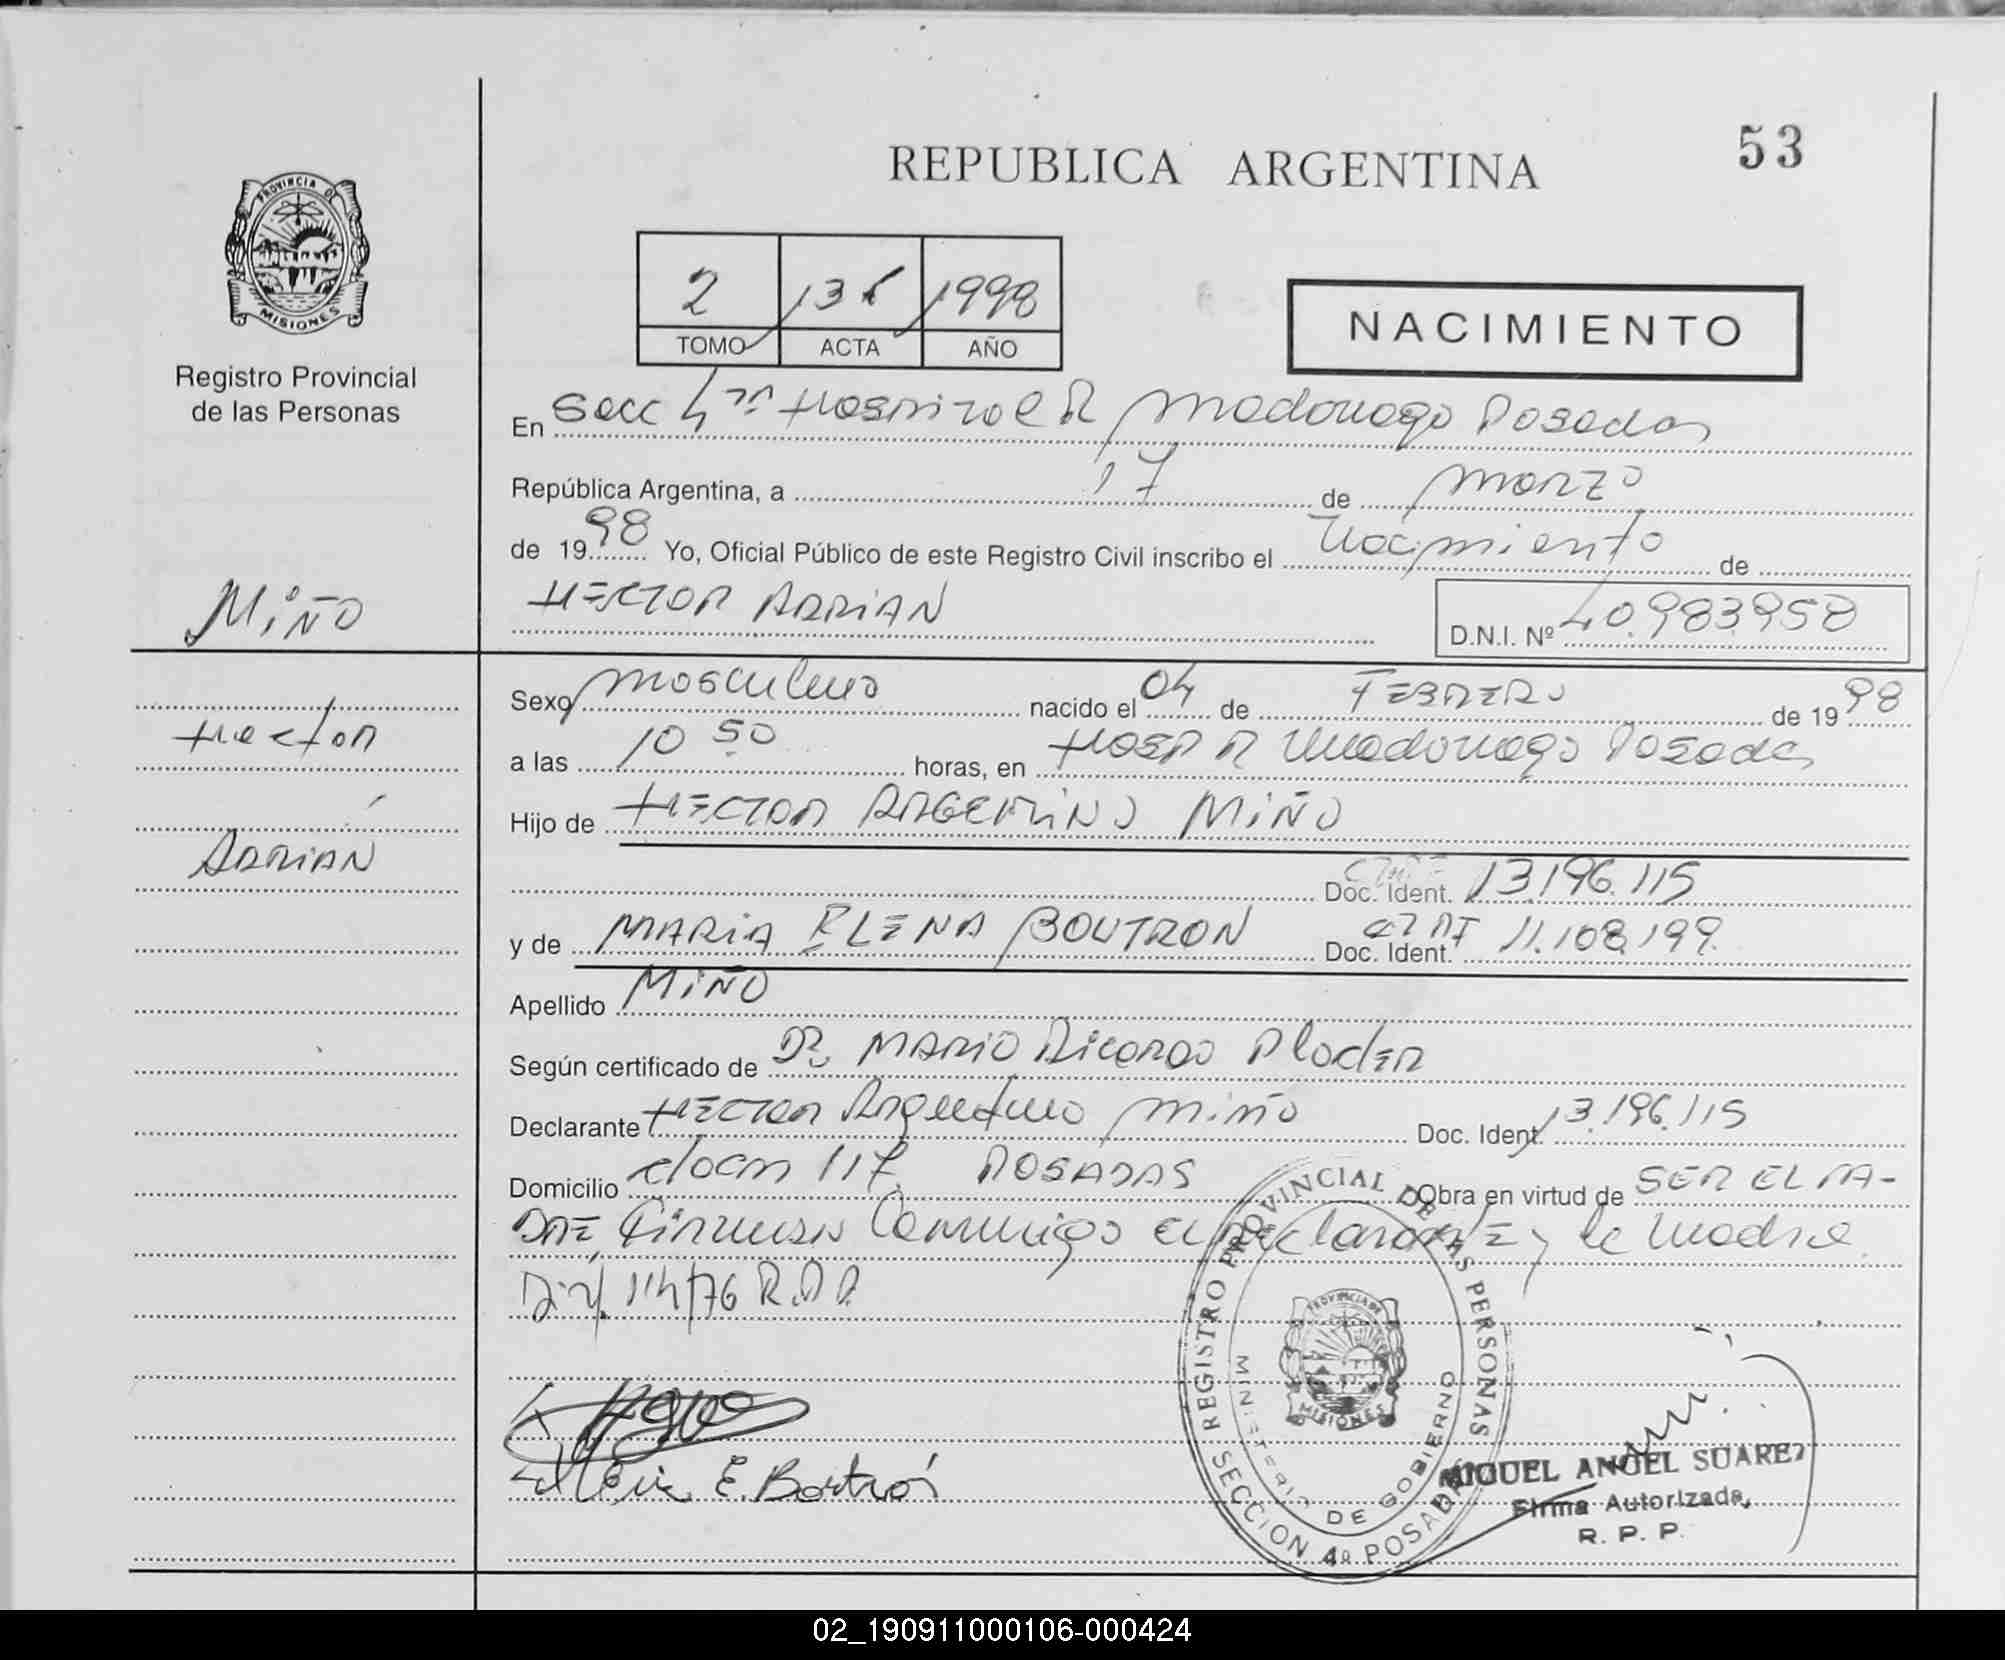 53
REPUBLICA ARGENTINA
PROVINCIA DE
MISIONES
Registro Provincial
de las Personas
2 13 1998
TOMO ACTA AÑO
NACIMIENTO
En Secc 4ta Hospital R Madariaga Posadas
República Argentina, a 17 de Marzo
de 1998 Yo, Oficial Público de este Registro Civil inscribo el Nacimiento de
HECTOR ADRIAN
D.N.I. Nº 40.983.958
MIÑO
Hector
ADRIAN
Sexo Masculino nacido el 04 de FEBRERO de 1998
a las 10 50 horas, en Hosp R Madariaga Posadas
Hijo de HECTOR ARGENTINO MIÑO
Doc. Ident. 13.196.115
y de MARIA ELENA BOUTRON Doc. Ident. 11.108.199
Apellido MIÑO
Según certificado de Dr. MARIO Ricardo Ploder
Declarante HECTOR Argentino Miño Doc. Ident. 13.196.115
Domicilio 117 POSADAS Obra en virtud de SER EL PA-
DRE, Firman Conmigo el declarante y la Madre.
114/76 R.P.P.
Maria E. Boutrón
REGISTRO PROVINCIAL DE LAS PERSONAS
MINISTERIO DE GOBIERNO
PROVINCIA DE
MISIONES
SECCION 4a POSADAS
MIGUEL ANGEL SUAREZ
Firma Autorizada
R. P. P.
02_190911000106-000424